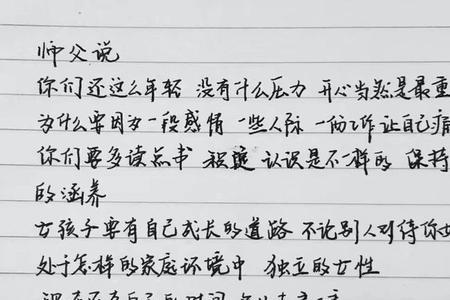 师父说
你们还这么年轻 没有什么压力 开心当然是最重
为什么要因为一段感情 一些人际 一份工作 让自己痛
你们要多读点书 认识是不一样的 保持
的涵养
女孩子要有自己成长的道路 不论别人对待你如
处于怎样的家庭环境中 独立的女性